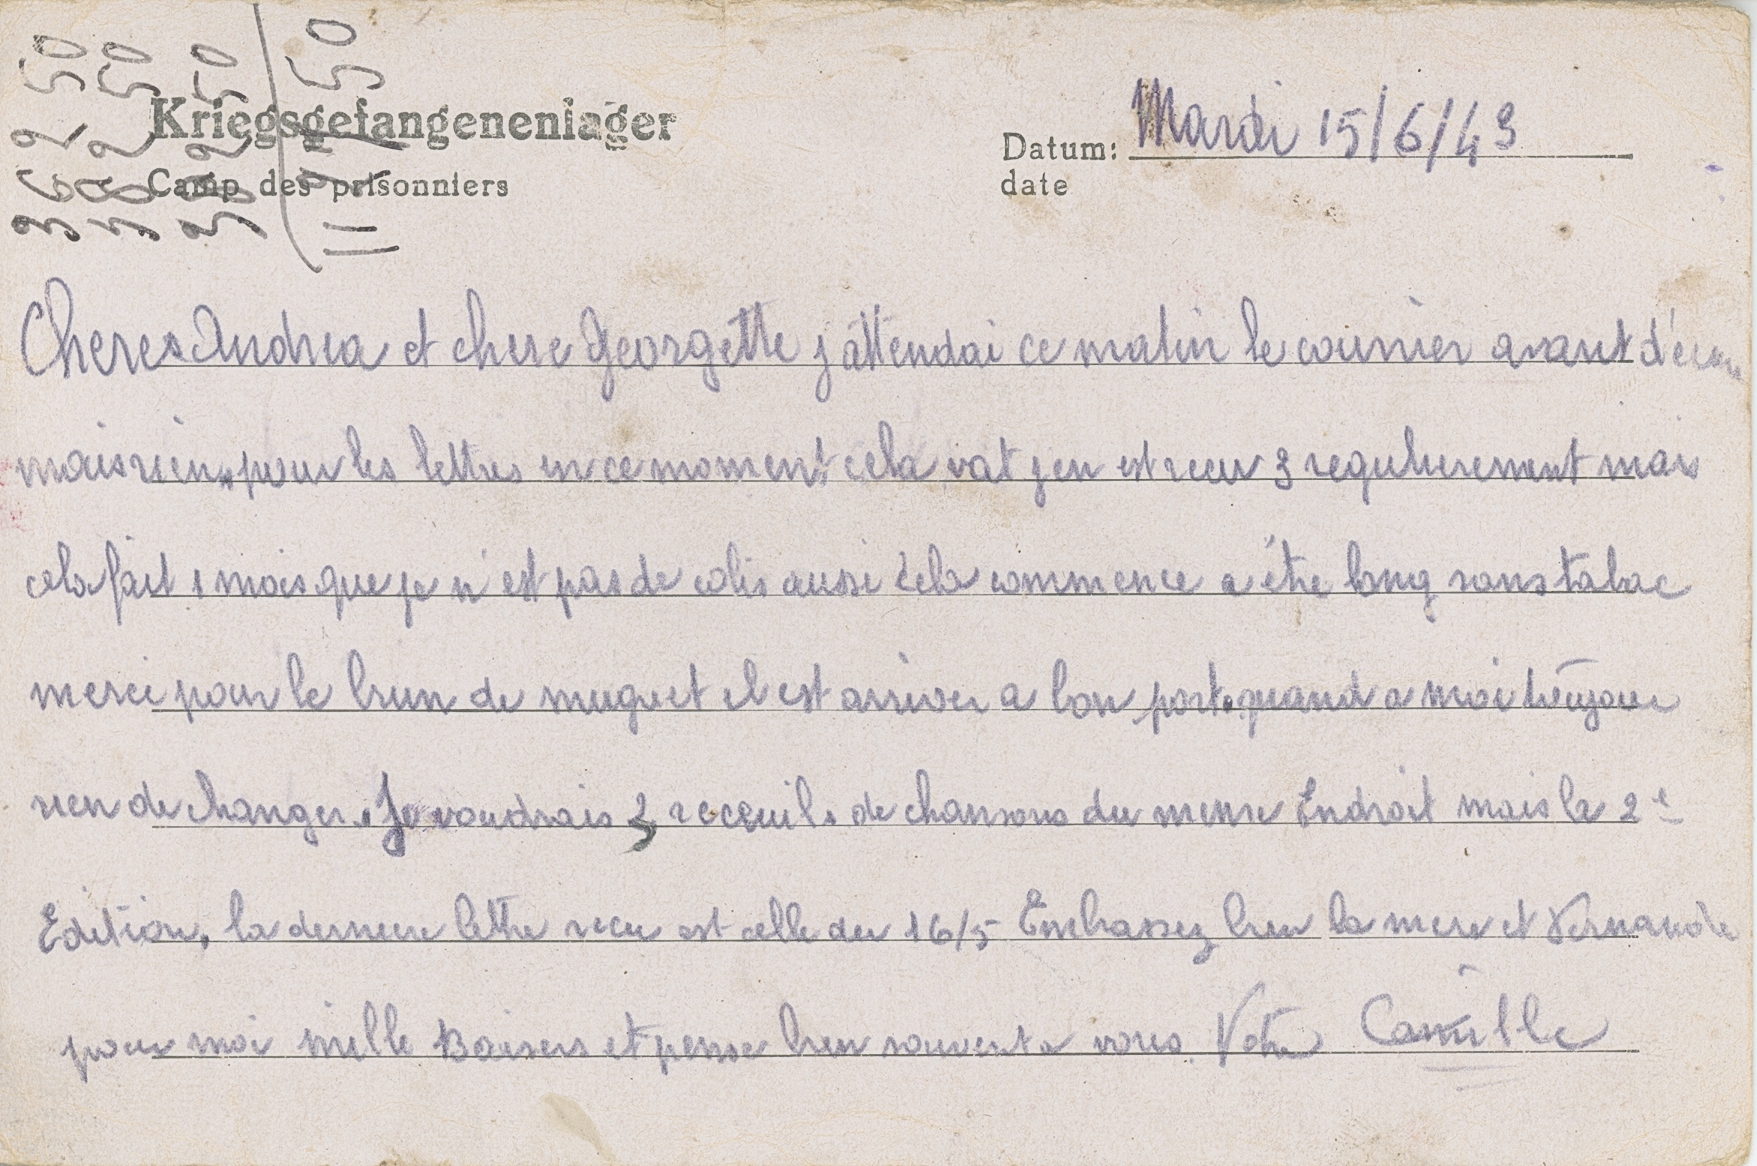 Kriegsgefangenenlager
Camp des prisonniers
Datum: Mardi 15/6/43
date
Cheres Andrea et chere Georgette j'attendai ce matin le courrier avant
mais rien, pour les lettres en ce moment cela vat j'en est recu 3 regulierement mais
cela fait 1 mois que je n'est pas de colis aussi cela commence a être long sans tabac
merci pour le brun de muguet il est arriver a bon port. quand a moi toujour
rien de changer. Je voudrais 2 receuils de chansons du meme Endroit mais la 2e
Edition, la derniere lettre recu est celle du 16/5 Embrassez bien la mere et Fernande
pour moi mille Baisers et pense bien souvent a vous. Votre Camille